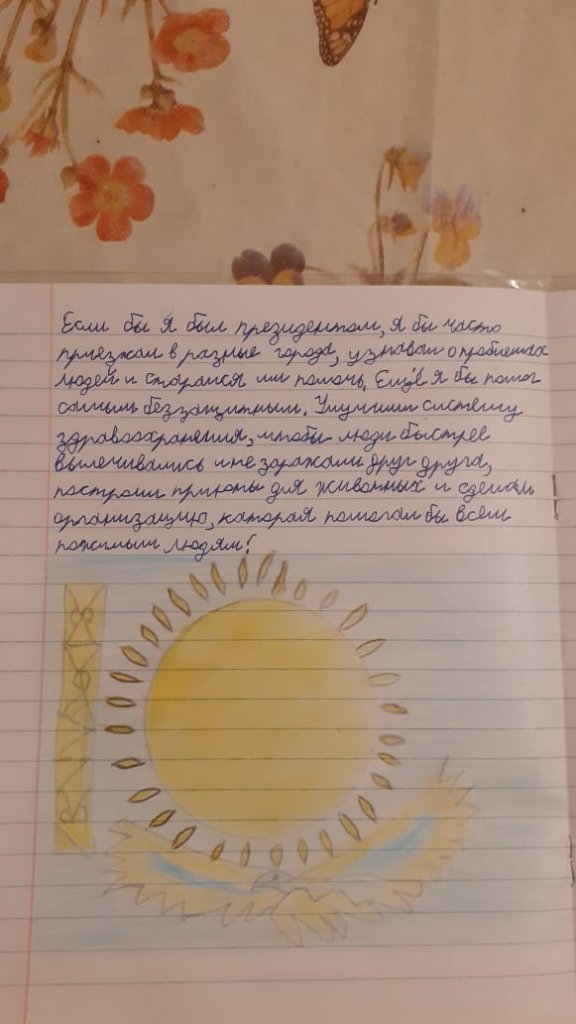 Если бы я был президентом, я бы часто
приезжал в разные города, узнавал о проблемах
людей и старался им помочь. Ещё я бы помог
самым беззащитным. Улучшил систему
здравоохранения, чтобы люди быстрее
вылечивались и не заражали друг друга,
построил приюты для животных и сделал
организацию, которая помогал бы всем
пожилым людям!